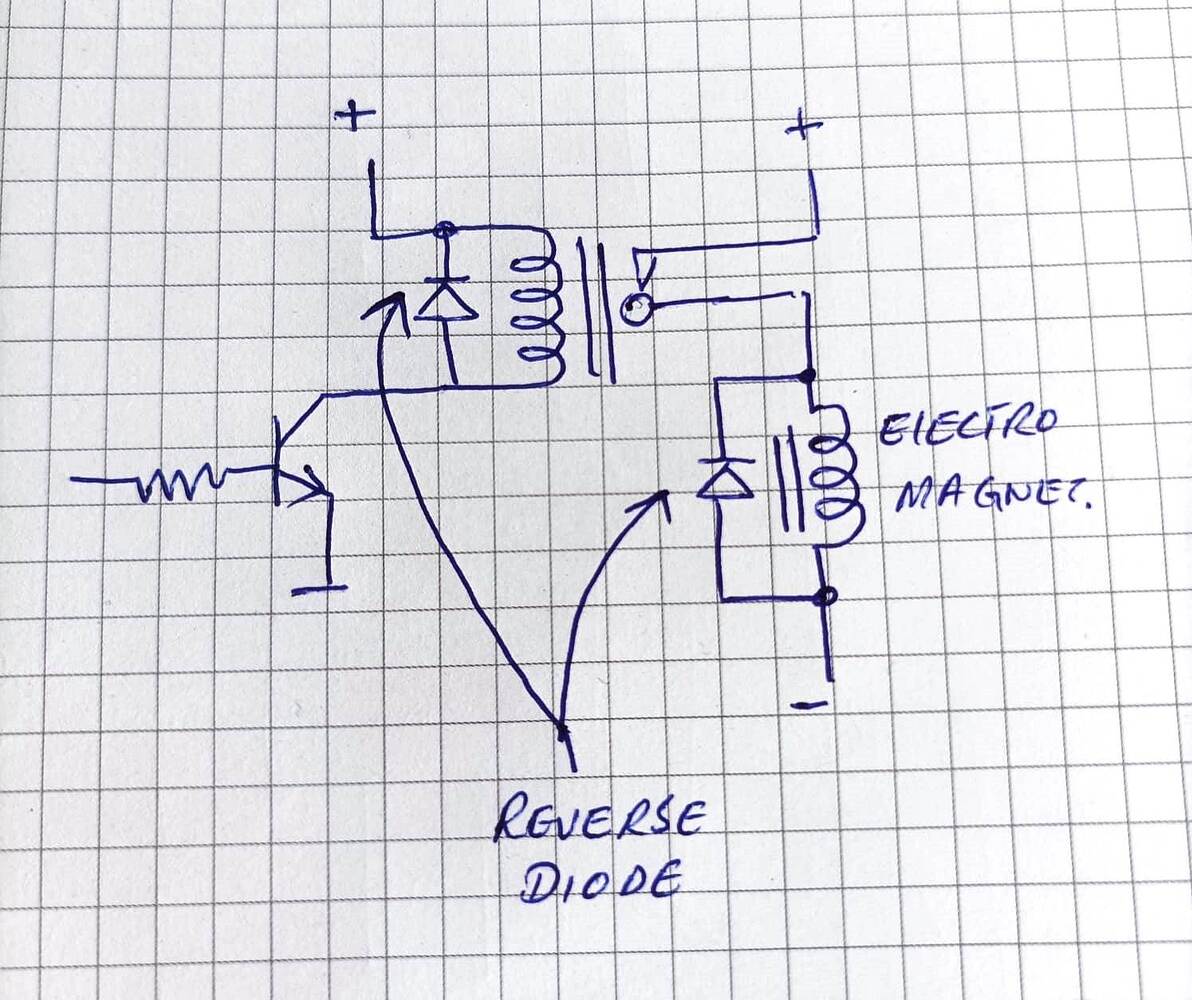 +
+
ELECTRO
MAGNET.
-
REVERSE
DIODE